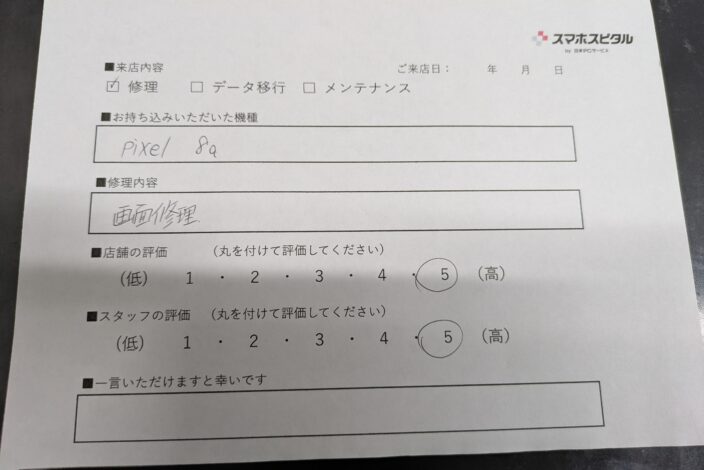 スマホスピタル
by 日本PCサービス
■来店内容
ご来店日： 年 月 日
☑ 修理 □ データ移行 □ メンテナンス
■お持ち込みいただいた機種
Pixel 8a
■修理内容
画面修理
■店舗の評価 （丸を付けて評価してください）
（低） 1 ・ 2 ・ 3 ・ 4 ・ 5 （高）
■スタッフの評価 （丸を付けて評価してください）
（低） 1 ・ 2 ・ 3 ・ 4 ・ 5 （高）
■一言いただけますと幸いです